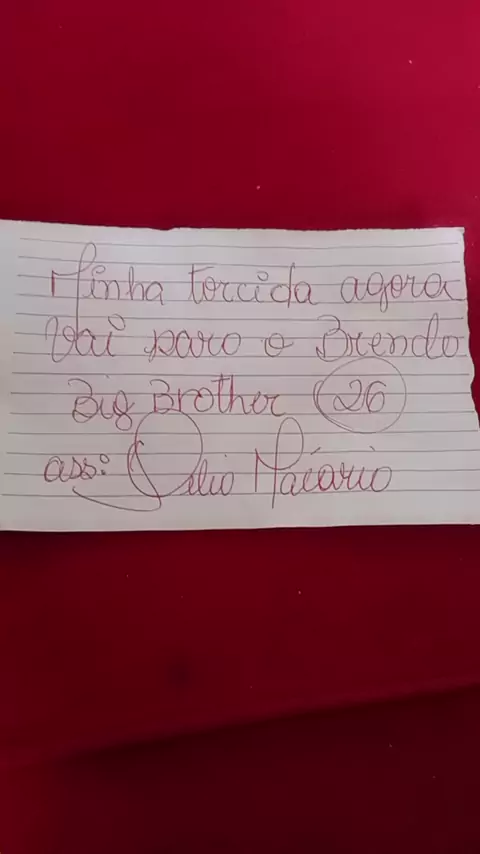 Minha torcida agora
Vai para o Brendo
Big Brother 26
ass: Célio Macário